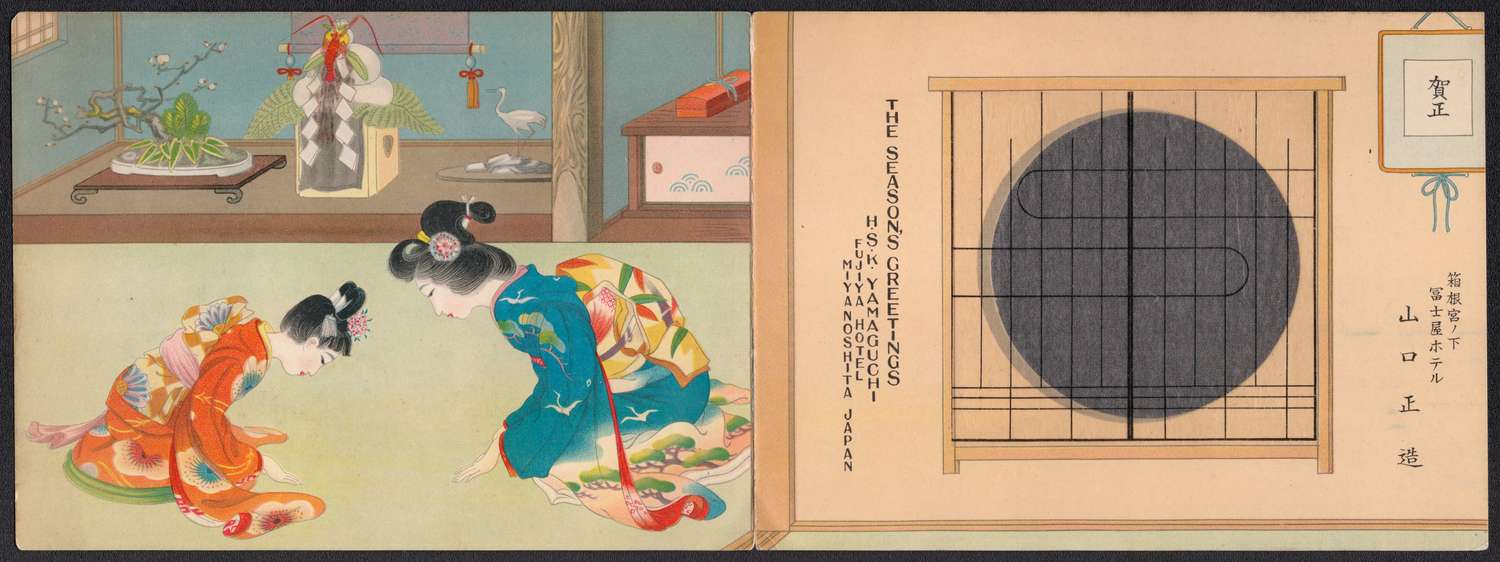 THE SEASON'S GREETINGS
H. S. K. YAMAGUCHI
FUJIYA HOTEL
MIYANOSHITA JAPAN
賀正
箱根宮ノ下
冨士屋ホテル
山口正造